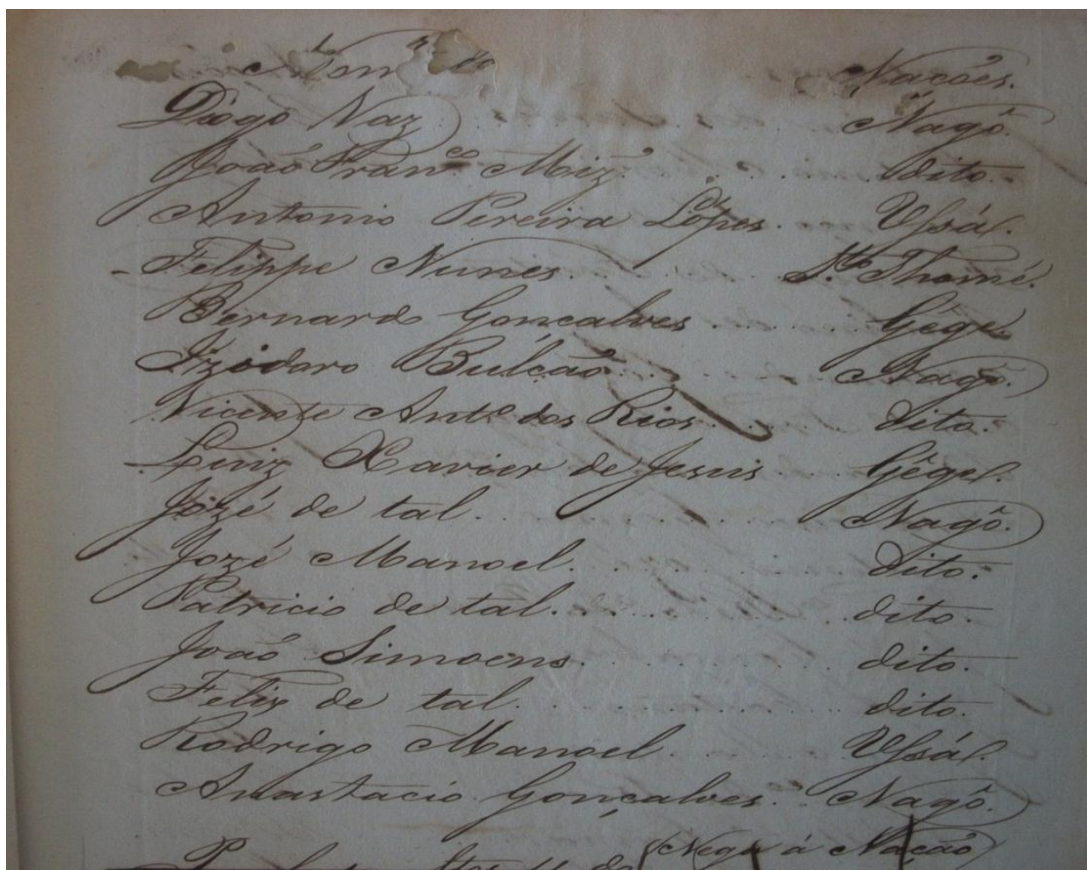 Nações.
Diogo Vaz Nagô.
João Franco Moiz dito.
Antonio Pereira Lopes. Ussá.
Felippe Nunes. S. Thomé.
Bernardo Gonçalves Gége.
Izidoro Bulcão Nagô.
Vicente Anto dos Rios dito.
Luiz Xavier de Jesus Gége.
Jozé de tal. Nagô.
Jozé Manoel. dito.
Patricio de tal. dito.
João Simoens. dito.
Felix de tal. dito.
Rodrigo Manoel Ussá.
Anastacio Gonçalves. Nagô.
á Nação